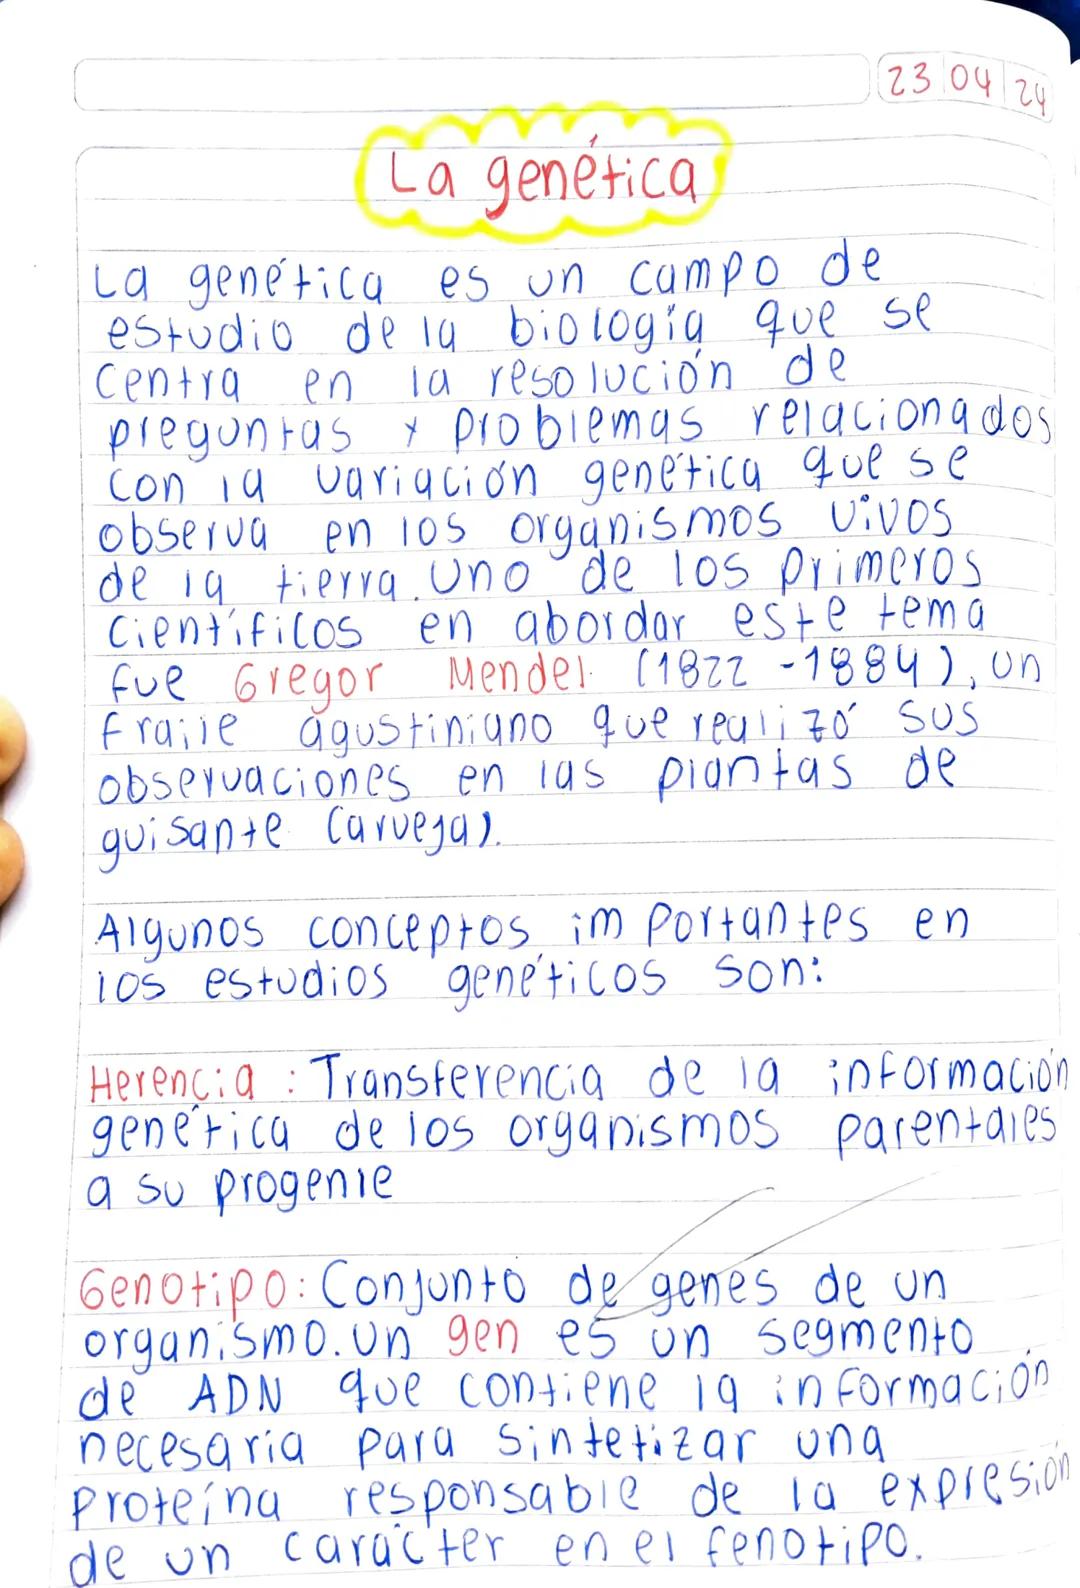 23 04 24
La genética
La genética es un campo de
estudio de la biología que se
centra en la resolución de
preguntas y problemas relacionados
con la variación genética que se
observa en los organismos vivos
de la tierra. Uno de los primeros
científicos en abordar este tema
fue Gregor Mendel (1822 - 1884), un
fraile agustiniano que realizó sus
observaciones en las plantas de
guisante (arveja).
Algunos conceptos importantes en
los estudios genéticos son:
Herencia : Transferencia de la información
genética de los organismos parentales
a su progenie
Genotipo: Conjunto de genes de un
organismo. un gen es un segmento
de ADN que contiene la información
necesaria para sintetizar una
proteína responsable de la expresión
de un carácter en el fenotipo.